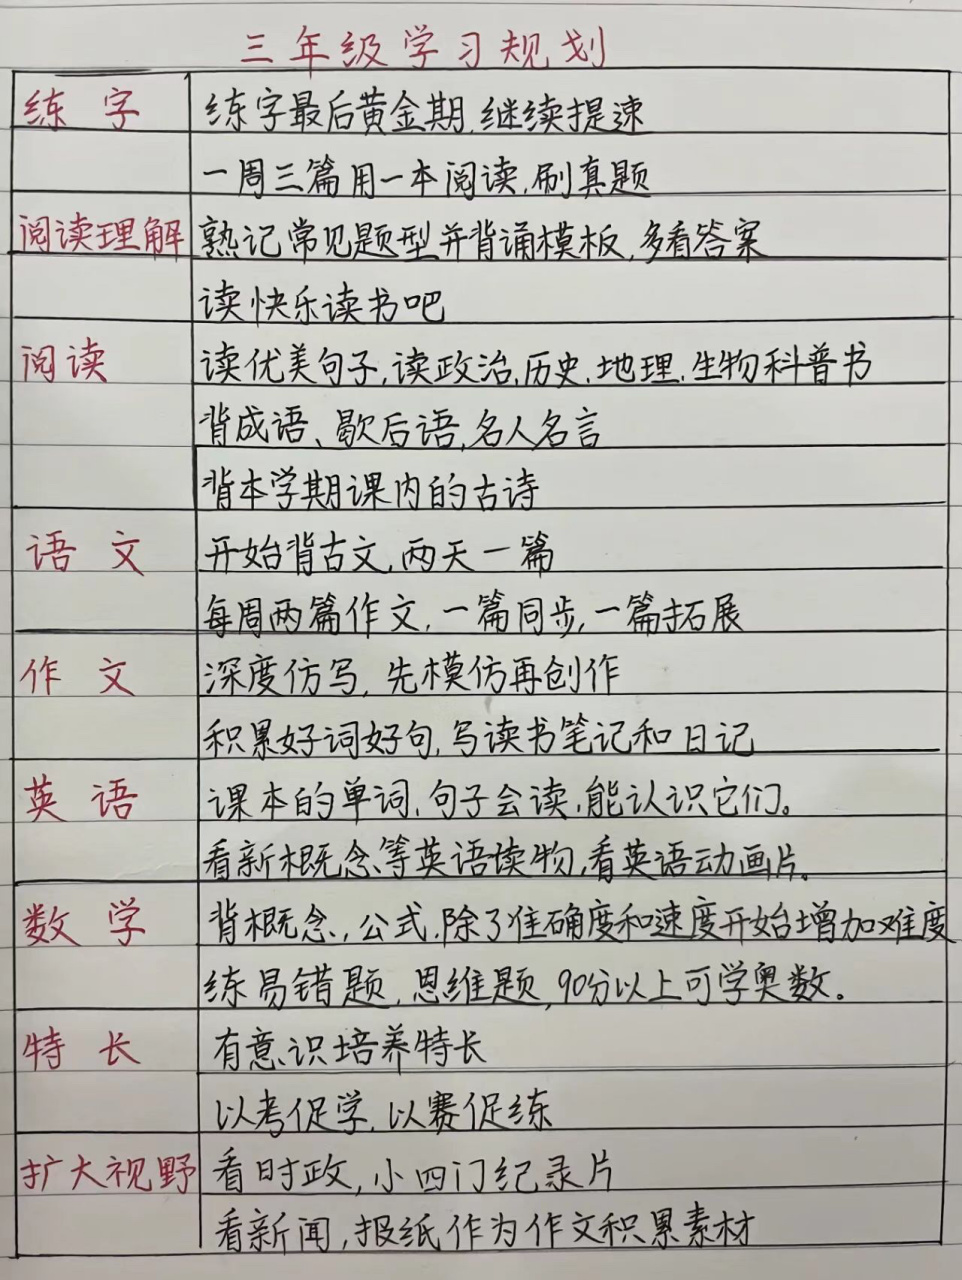 三年级学习规划
练字 练字最后黄金期,继续提速
一周三篇用一本阅读,刷真题
阅读理解 熟记常见题型并背诵模板,多看答案
读快乐读书吧
阅读 读优美句子,读政治,历史,地理,生物科普书
背成语、歇后语,名人名言
背本学期课内的古诗
语文 开始背古文,两天一篇
每周两篇作文,一篇同步,一篇拓展
作文 深度仿写,先模仿再创作
积累好词好句,写读书笔记和日记
英语 课本的单词,句子会读,能认识它们。
看新概念等英语读物,看英语动画片。
数学 背概念,公式,除了准确度和速度开始增加难度
练易错题,思维题,90分以上可学奥数。
特长 有意识培养特长
以考促学,以赛促练
扩大视野 看时政,小四门纪录片
看新闻,报纸作为作文积累素材